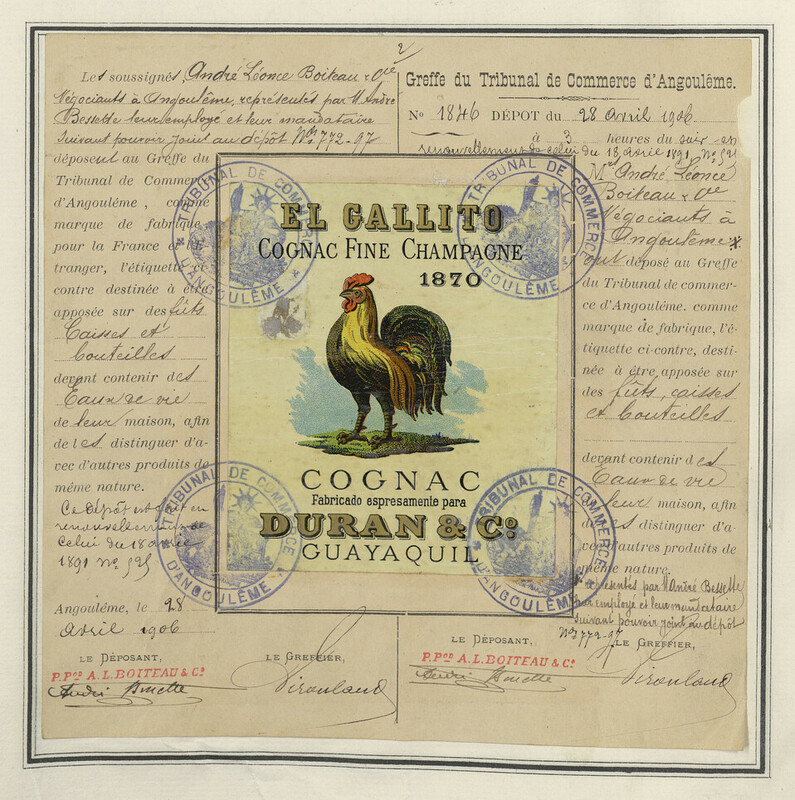 2
Les soussignés, André Léonce Boiteau & Cie
Négociants à Angoulême, représentés par M. André
Bessette leur employé et leur mandataire
suivant pouvoir joint au dépôt Nos 772-97
déposent au Greffe du
Tribunal de Commerce
d'Angoulême, comme
marque de fabrique,
pour la France et l'É-
tranger, l'étiquette ci-
contre destinée à être
apposée sur des fûts
Caisses et
bouteilles
devant contenir des
Eaux de vie
de leur maison, afin
de les distinguer d'a-
vec d'autres produits de
même nature.
Ce dépôt est fait en
renouvellement de
celui du 18 avril
1891 No. 525
Angoulême, le 28
Avril 1906
LE DÉPOSANT,
P.Pon A.L. BOITEAU & Ce
André Bessette
LE GREFFIER,
EL GALLITO
COGNAC FINE CHAMPAGNE
1870
COGNAC
Fabricado espresamente para
DURAN & Co.
GUAYAQUIL
TRIBUNAL DE COMMERCE
* D'ANGOULÊME *
TRIBUNAL DE COMMERCE
D'ANGOULÊME
TRIBUNAL DE COMMERCE
D'ANGOULÊME
TRIBUNAL DE COMMERCE
D'ANGOULÊME
Greffe du Tribunal de Commerce d'Angoulême.
No 1846 DÉPOT du 28 Avril 1906
à 3 heures du soir en
renouvellement de celui du 18 avril 1891, No. 525
André Léonce
Boiteau & Cie
Négociants à
Angoulême *
ont déposé au Greffe
du Tribunal de commer-
ce d'Angoulême. comme
marque de fabrique, l'é-
tiquette ci-contre, desti-
née à être apposée sur
des fûts, caisses
et bouteilles
devant contenir des
Eaux de vie
de leur maison, afin
de les distinguer d'a-
vec d'autres produits de
même nature.
* représentés par M. André Bessette
leur employé et leur mandataire
suivant pouvoir joint au dépôt
Nos 772-97
LE DÉPOSANT,
P.Pon A.L. BOITEAU & Ce
André Bessette
LE GREFFIER,